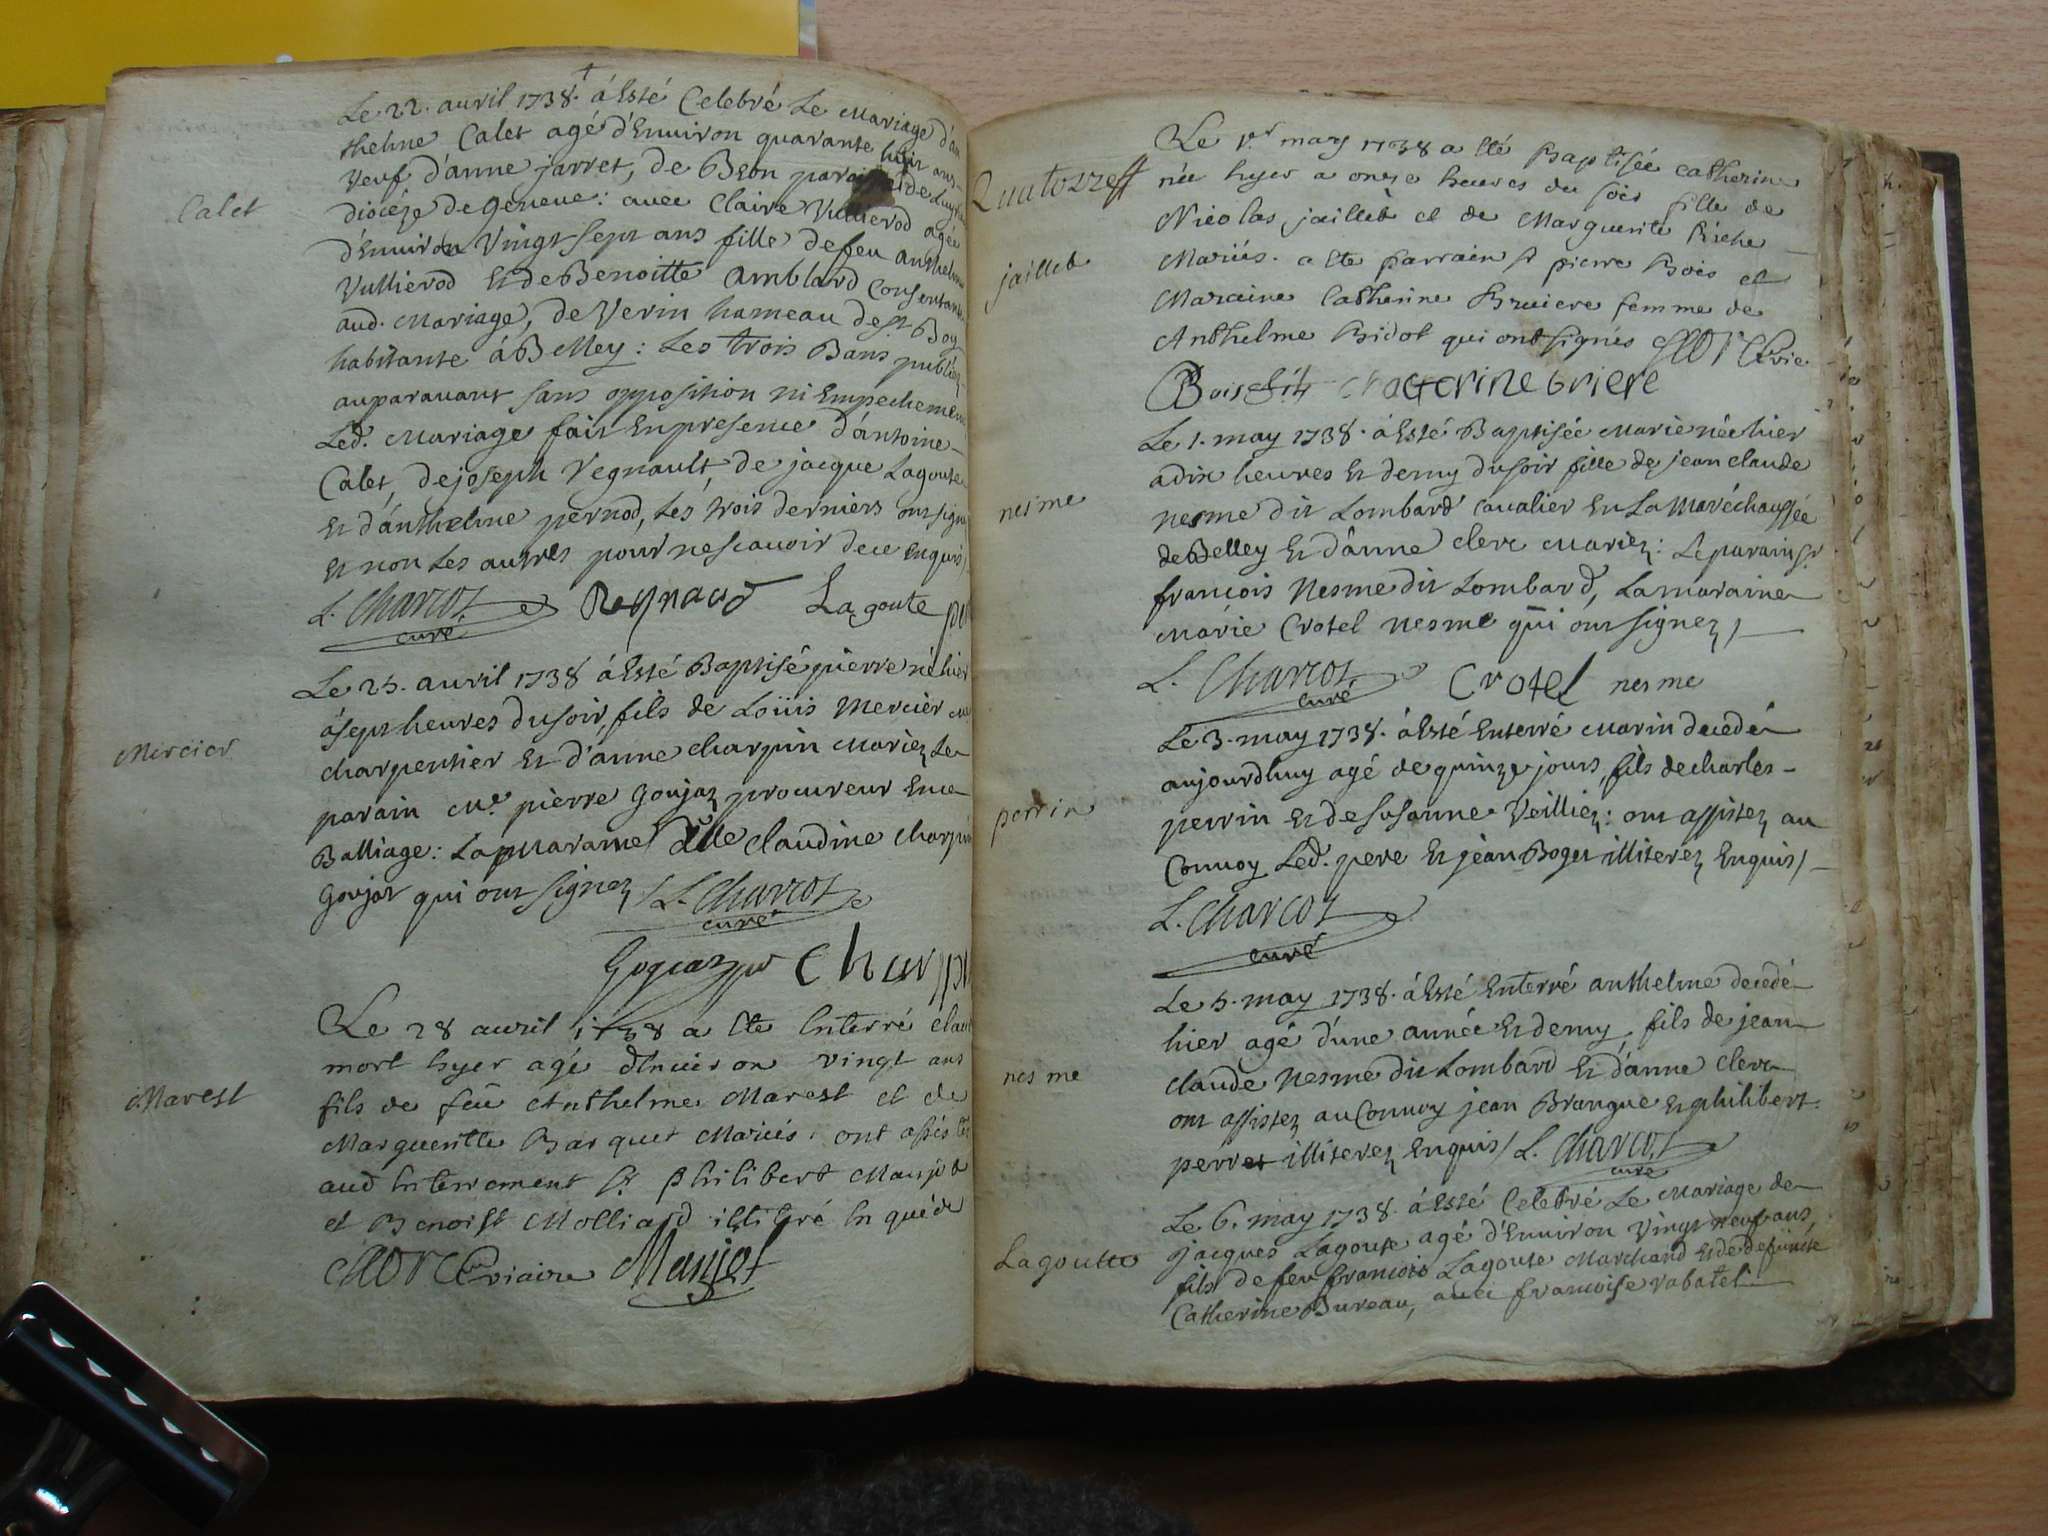 Le 22. auril 1738. á Esté Celebré Le Mariage d'an
thelme Calet agé d'Enuiron quarante huit ans
veuf d'anne jarret, de Beon
Calet
diocéze de geneue: auec Claire Vullierod agée
d'Enuiron Vingt sept ans fille de feu anthelme
Vullierod Et de Benoitte Amblard Consentante
aud. Mariage, de Verin hameau de st. Boy
habitante á Belley: Les trois Bans publiez
auparauant sans opposition ni Empechement
Led. Mariage fait En presence d'antoine
Calet, de joseph Regnault, de jacque Lagoute
Et d'anthelme pernod, Les trois derniers ont signé
Et non Les autres pour ne scauoir de ce Enquis/
L. Charcot Reynaud Lagoute
curé
Le 25. auril 1738 á Esté Baptisé pierre né hier
á sept heures du soir, fils de Loüis Mercier
Mercier
charpentier Et d'anne charpin Mariez Le
parain Me. pierre goujaz procureur En ce
Balliage: La Maraine dlle claudine charpin
goujat qui ont signez / L. Charcot
curé
Le 28 auril 1738 a Ete Enterré
mort hyer agé d'Enuiron vingt ans
Marest
fils de feü Anthelme Marest et de
Marguerite Barquet Mariés. ont assisté
aud Enterrement Sr philibert Maujot
et Benoist Molliard illitéré Enquis de
Cviaire Maujot
Quatorze ff
Le 1er may 1738 a Eté Baptisée Catherine
née hyer a onze heures du soir fille de
Nicolas jaillet et de Marguerite
jaillet
Mariés. a Ete parrain sr pierre Bois et
Maraine Catherine Bruiere femme de
Anthelme Bidot qui ont signés
Bois fils Chaterine briere
Le 1. may 1738. á Esté Baptisée Marie née hier
a dix heures Et demy du soir fille de jean claude
nesme
nesme dit Lombard Caualier En La Maréchaussée
de Belley Et d'anne clerc Mariez: Le parain sr.
francois Nesme dit Lombard, La maraine
Marie Crotel nesme qui ont signez /
L. Charcot Crotel nesme
curé
Le 3. may 1738. á Esté Enterré Marin decedé
aujourdhuy agé de quinze jours, fils de charles
perrin
perrin Et de susanne Veilliez: ont assistez au
Conuoy Led. pere Et jean Boget illiterez Enquis /
L. Charcot
curé
Le 5. may 1738. á Esté Enterré anthelme decedé
hier agé d'une année Et demy, fils de jean
nesme
claude Nesme dit Lombard Et d'anne clerc
ont assistez au Conuoy jean Brangue Et philibert
perret illiterez Enquis / L. Charcot
curé
Le 6. may 1738. á Esté Celebré Le Mariage de
jacques Lagoute agé d'Enuiron Vingt neuf ans
Lagoutte
fils de feu francois Lagoute Marchand Et de defuncte
Catherine Bureau, auec francoise rabatel